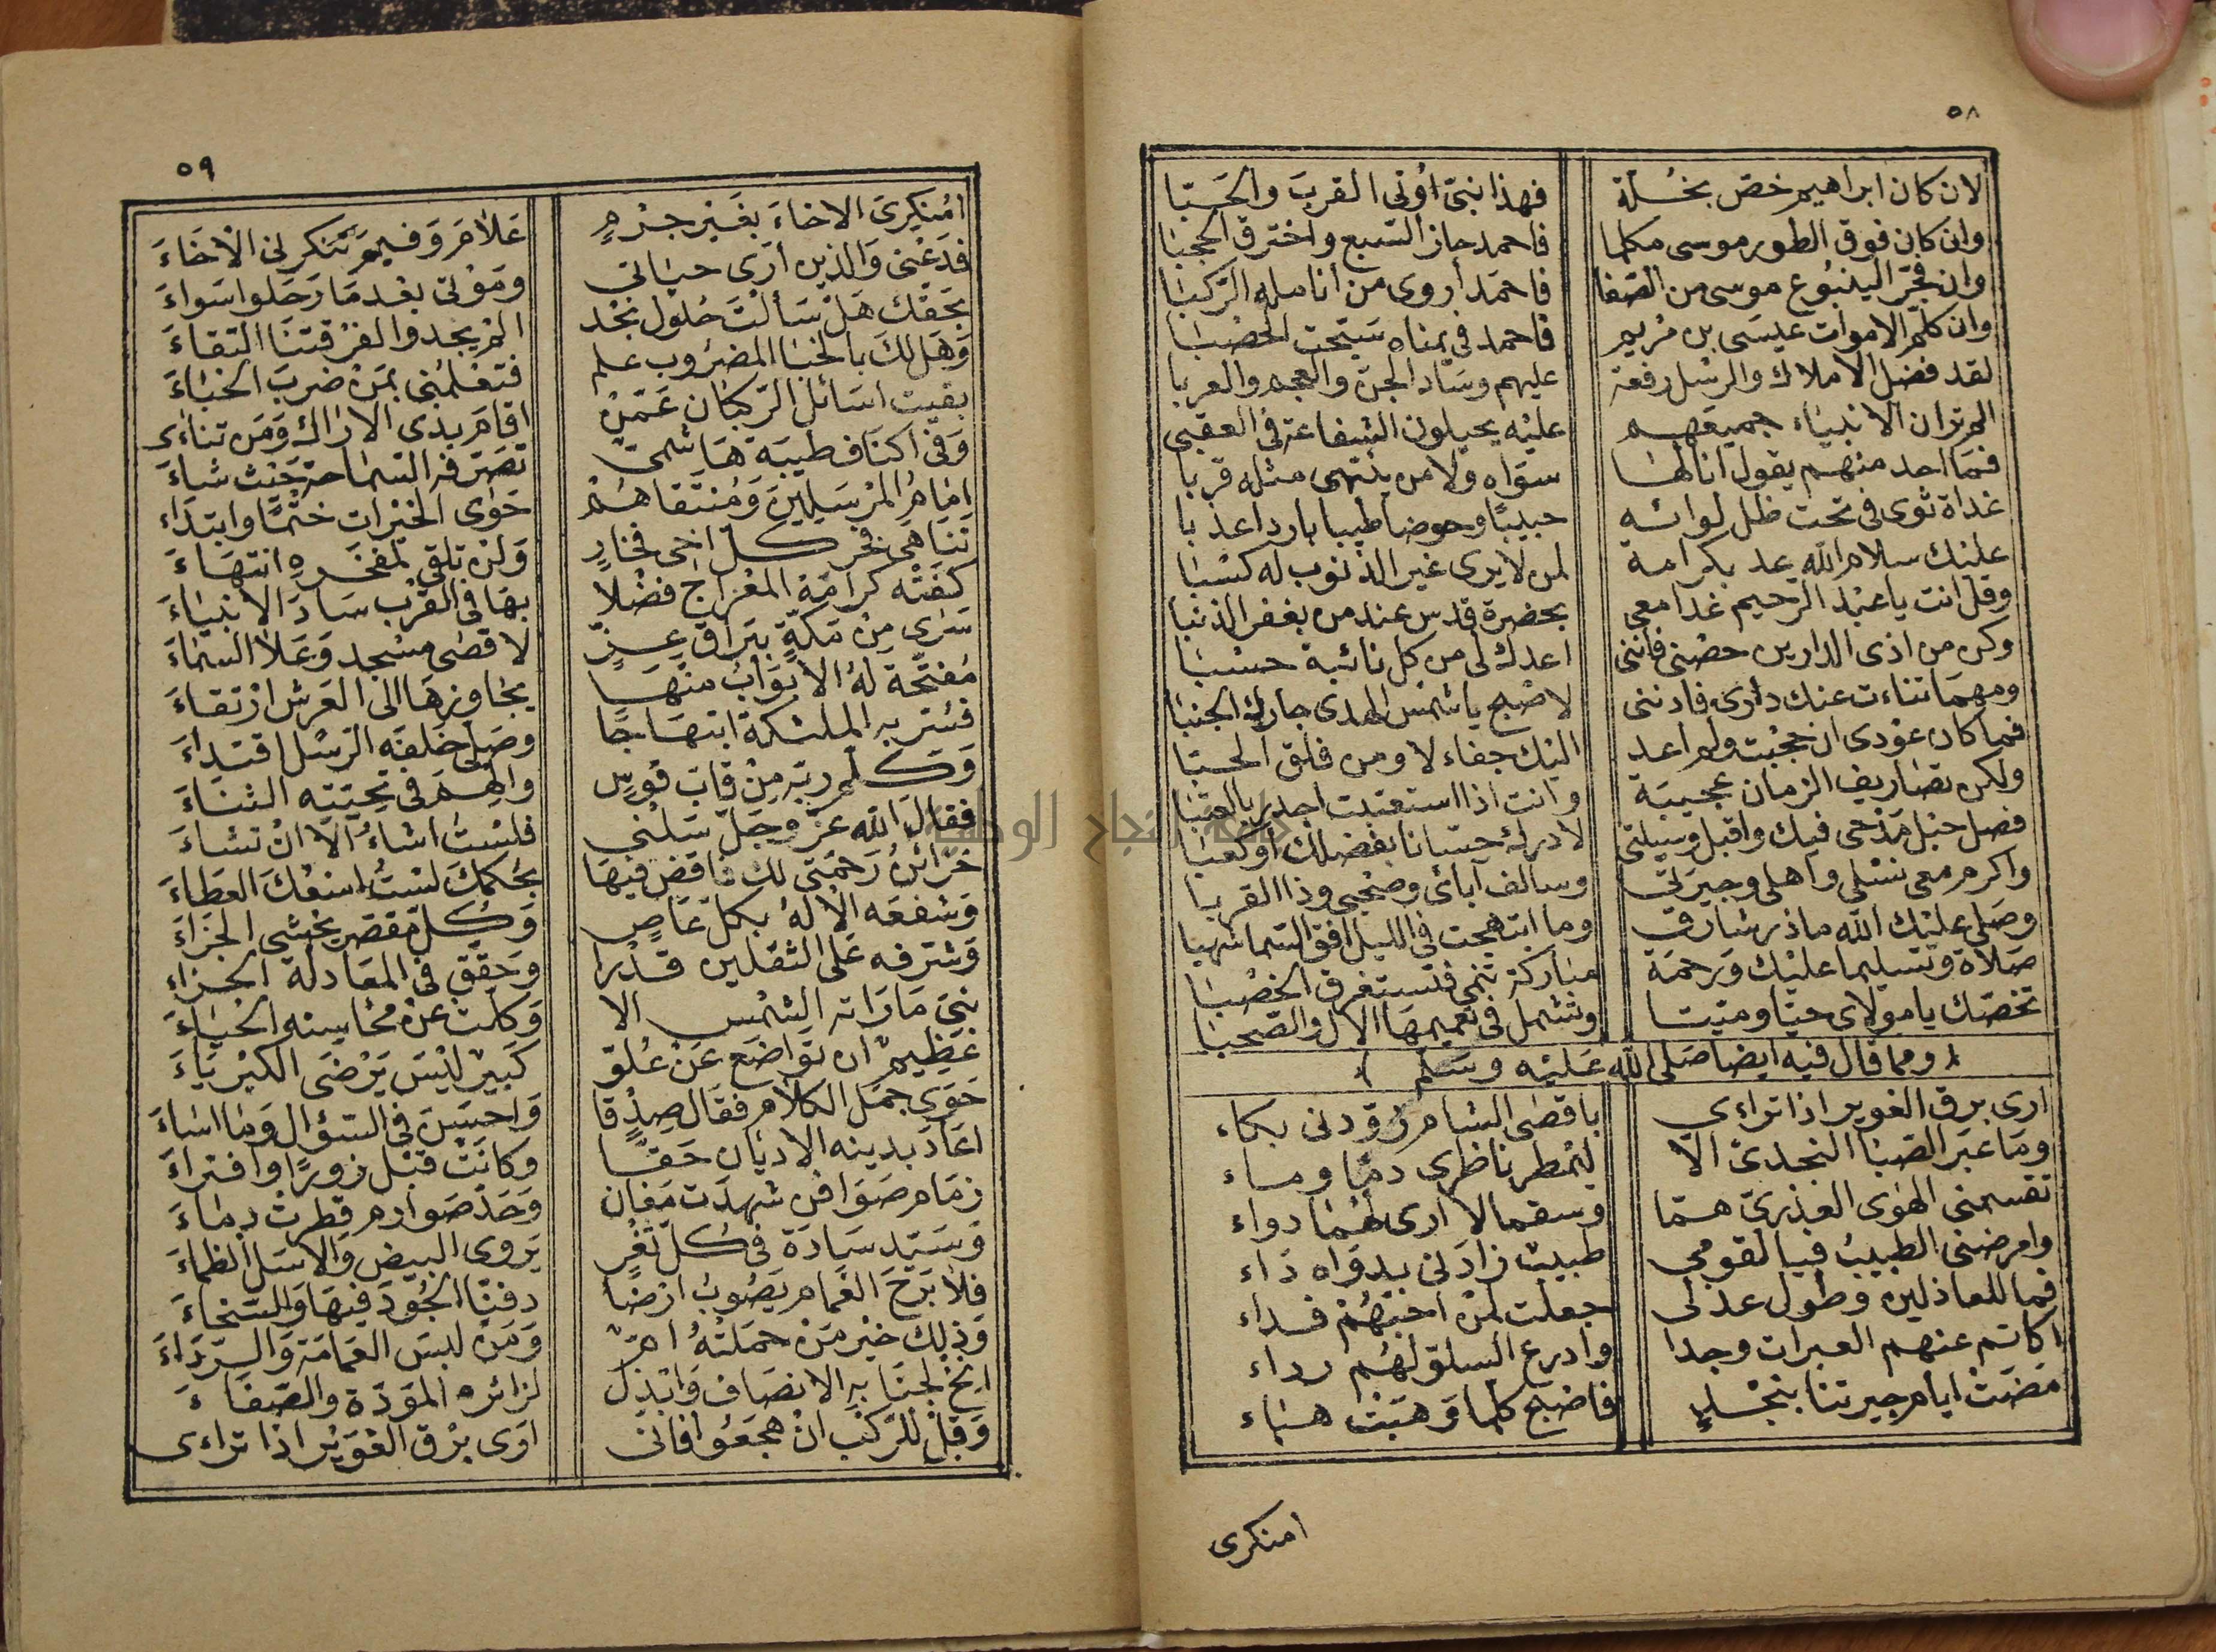 ٥٨
لان كان ابراهيم خص بخلة فهذا نبى اوتى القرب والحبا
وان كان فوق الطور موسى مكلما فاحمد حاز السبع واخترق الحجبا
وان فجر الينبوع موسى من الصفا فاحمد أروى من أنامله الركبا
وان كلم الاموات عيسى بن مريم فاحمد فى يمناه سبحت الحصبا
لقد فضل الاملاك والرسل رفعة عليهم وساد الجن والعجم والعربا
الم تران الانبياء جميعهم عليه يحيلون الشفاعة فى العقبى
فما احد منهم يقول انا لها سواه ولا من ينتهى مثله قربا
غداة ثوى فى تحت ظل لوائه حبيبا وحوضا طيبا باردا عذبا
عليك سلام الله عد بكرامة لمن لا يرى غير الذنوب له كسبا
وقل انت يا عبد الرحيم غدا معى بحضرة قدس عند من يغفر الذنبا
وكن من اذى الدارين حصنى فاننى اعدك لى من كل نائبة حسبا
ومهما تناءت عنك دارى فادننى لاصبح يا شمس الهدى جارك الجنبا
فما كان عودى ان حججت ولم اعد اليك جفاء لا ومن فلق الحبا
ولكن تصاريف الزمان عجيبة وانت اذا استعتبت اجدر بالعتبا
فصل حبل مدحى فيك واقبل وسيلتى لادرك حسانا بفضلك أو كعبا
واكرم معى نسلى واهلى وجيرتى وسالف آبائى وصحبى وذا القربا
وصلى عليك الله ماذر شارق وما ابتهجت فى الليل افق السما شهبا
صلاة وتسليما عليك ورحمة مباركة تنمى فتستغرق الحصبا
تخصك يا مولاى حيا وميتا وتشمل فى تعميمها الال والصحبا
ومما قال فيه ايضا صلى الله عليه وسلم
ارى برق الغوير اذا تراءى باقصى الشام زودنى بكاء
وما عبر الصبا النجدى الا ليمطر ناظرى دما وماء
تقسمنى الهوى العذرى هما وسقما لا ارى لهما دواء
وامرضنى الطبيب فيا لقومى طبيب زادنى بدواه داء
فما للعاذلين وطول عذلى جعلت لمن احبهم فداء
اكاتم عنهم العبرات وجدا وادرع السلو لهم رداء
مضت ايام جيرتنا بنجد فاضبح كلما وهبت هباء
امنكرى
٥٩
امنكرى الاخاء بغير جرم علام وفيم تنكرنى الاخاء
فدعنى والذين أرى حياتى وموتى بعد ما رحلوا سواء
بحقك هل سألت حلول نجد الم يجدوا لفرقتنا التقاء
وهل لك بالخبا المضروب علم فتعلمنى بمن ضرب الخباء
بقيت اسائل الركبان عمن اقام بذى الاراك ومن تناءى
وفى اكناف طيبة هاشمى تصرف السماحة حيث شاء
امام المرسلين ومنتقاهم حوى الخيرات ختما وابتداء
تناهى فخر كل اخى فخار ولن تلقى لمفخره انتهاء
كفته كرامة المعراج فضلا بها فى القرب ساد الانبياء
سرى من مكة ببراق عز لاقصى مسجد وعلا السماء
مفتحة له الابواب منها يجاوزها الى العرش ارتقاء
فسر به الملئكة ابتهاجا وصلى خلفه الرسل اقتداء
وكلم ربه من قاب قوس والهم فى تحيته الثناء
فقال الله عز وجل سلنى فلست اشاء الا ان تشاء
خزائن رحمتى لك فاقض فيها بحكمك لست امنعك العطاء
وشفعه الاله بكل عاص وكل مقصر يخشى الجزاء
وشرفه على الثقلين قدرا وحقق فى المعادلة الجزاء
نبى ماراته الشمس الا وكانت عن محاسنه الحياء
عظيم ان تواضع عن علو كبير ليس يرضى الكبرياء
حوى جمل الكلام فقال صدقا واحسن فى السؤال وما اساء
اعاد بدينه الاديان حقا وكانت قبل زورا وافتراء
زمام صوافن شهدت مغان وحد صوارم قطرت دماء
وسيد سادة فى كل ثغر يروى البيض والاسل الظماء
فلا برح الغمام يصوب ارضا دفنا الجود فيها والسخاء
وذلك خير من حملته ام ومن لبس العمامة والرداء
انخ لجنابه الانصاف وابذل لزائره المودة والصفاء
وقل للركب ان هجعوا فانى ارى برق الغوير اذا تراءى